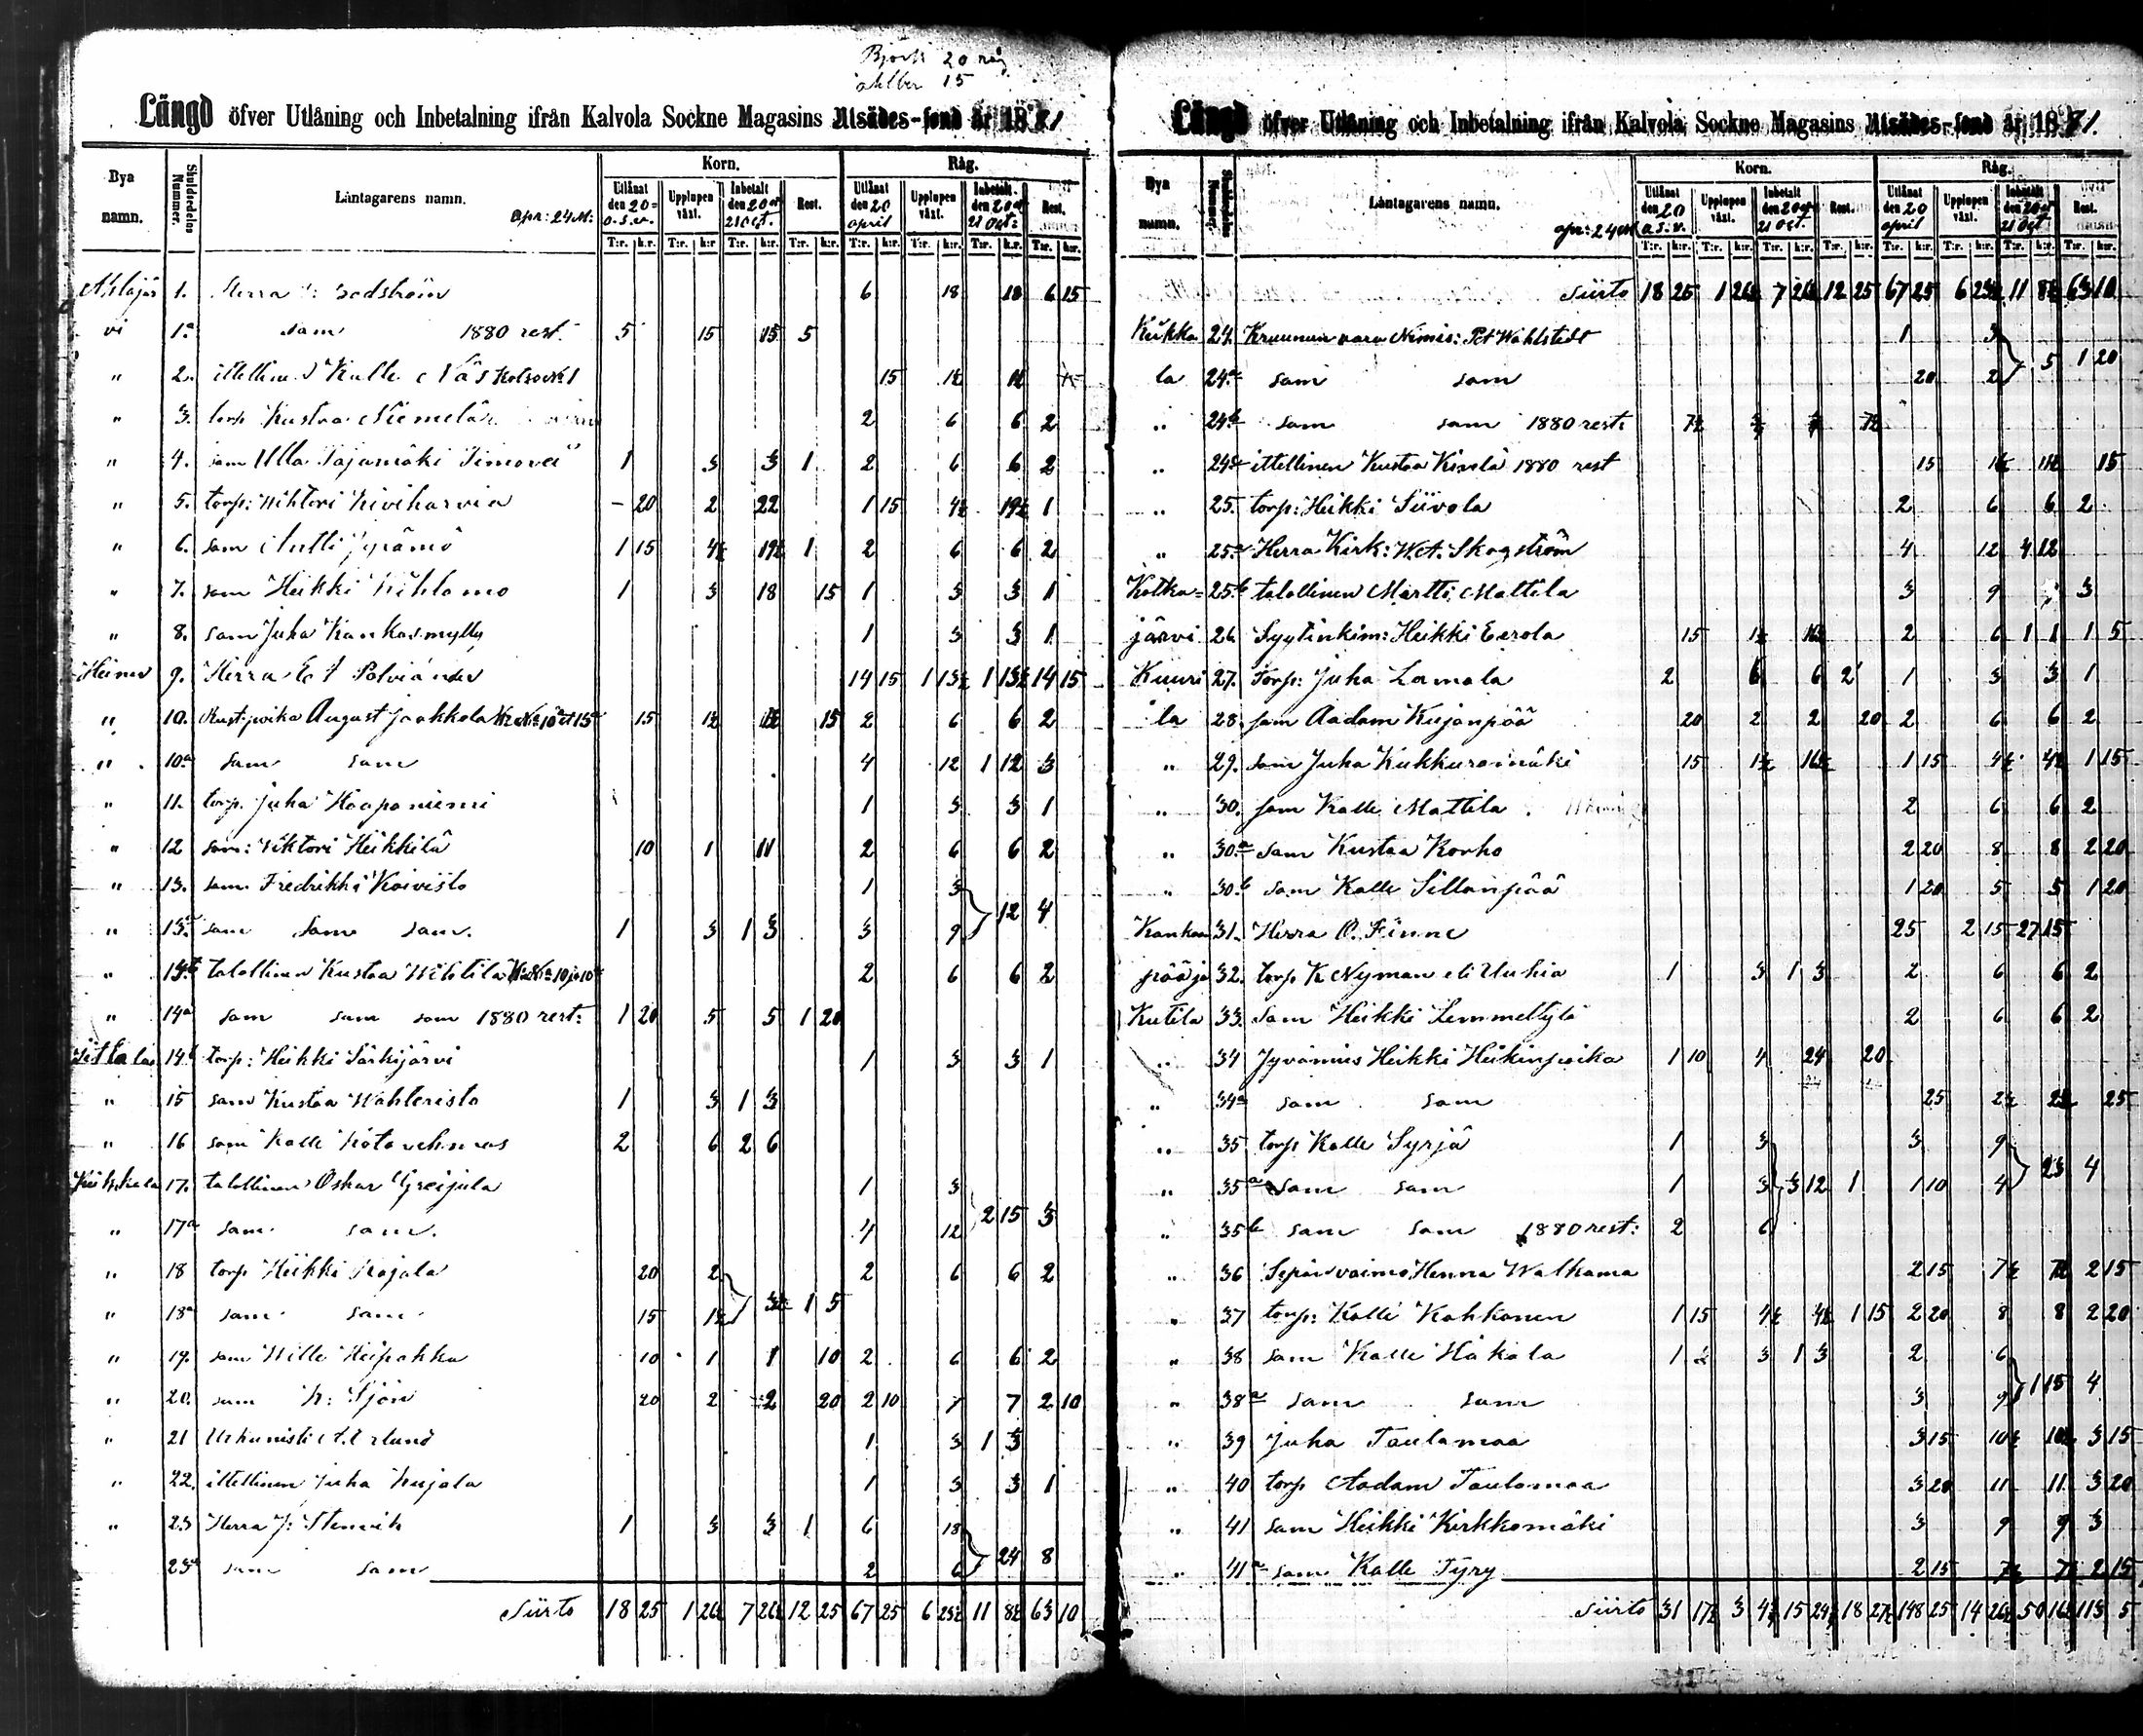 Björk 20 råg
15
Längd öfver Utlåning och Inbetalning ifrån Kalvola Sockne Magasins Utsädes-fond år 1881
Bya namn. Skuldsedelns Nummer. Låntagarens namn. apr: 24 M: Korn. Råg.
Utlånat den 20 Upplupen växt. Inbetalt den 20 21 Oct. Rest. Utlånat den 20 april Upplupen växt. Inbetalt den 20 21 Oct: Rest.
T:r. k:r. T:r. k:r. T:r. k:r. T:r. k:r. T:r. k:r. T:r. k:r. T:r. k:r. T:r. k:r.
1. Herra 6 18 18 6 15
vi 1a sam 1880 rest. 5 15 15 5
" 2. ittellinen Kalle 15 1½ 1½
" 3. torp Kustaa Niemelä 2 6 6 2
" 4. sam Ulla Pajamäki 1 3 3 1 2 6 6 2
" 5. torp: Wihtori Kiviharvia - 20 2 22 1 15 4½ 19½ 1
" 6. sam Antti Jyrämö 1 15 4½ 19½ 1 2 6 6 2
" 7. sam Heikki 1 3 18 15 1 3 3 1
" 8. sam Juha Kankasmylly 1 3 3 1
9. Herra 14 15 1 13½ 1 13½ 14 15
" 10. August Jaakkola 15 1½ 1½ 15 2 6 6 2
" 10a sam sam 4 12 1 12 3
" 11. torp. Juha Haaponiemi 1 3 3 1
" 12 sam: Wiktori Heikkilä 10 1 11 2 6 6 2
" 13. sam Fredrikki Koivisto 1 3
" 13a sam sam sam. 1 3 1 3 3 9 12 4
" talollinen Kustaa Wihtila 2 6 6 2
" 14a sam sam sam 1880 rest: 1 20 5 5 1 20
14b torp: Heikki Särkijärvi 1 3 3 1
" 15 sam Kustaa Wahteristo 1 3 1 3
" 16 sam Kalle 2 6 2 6
17. talollinen Oskar Greijula 1 3
" 17a sam sam. 4 12 2 15 3
" 18 torp Heikki Rajala 20 2 2 6 6 2
" 18a sam sam 15 1½ 3½ 1 5
" 19. sam Wille Heipakka 10 1 1 10 2 6 6 2
" 20. sam 20 2 2 20 2 10 7 7 2 10
" 21 Urkunisti 1 3 1 3
" 22. ittellinen Juha Kujala 1 3 3 1
" 23 Herra J: Stenvik 1 3 3 1 6 18
23a sam sam 2 6 24 8
Siirto 18 25 1 26½ 7 26½ 12 25 67 25 6 23½ 11 8½ 63 10
Längd öfver Utlåning och Inbetalning ifrån Kalvola Sockne Magasins Utsädes-fond år 1881.
Bya namn. Låntagarens namn. apr: 24 M Korn. Råg.
Utlånat den 20 Upplupen växt. Inbetalt den 20 21 Oct. Rest. Utlånat den 20 april Upplupen växt. Inbetalt den 20 21 Oct Rest.
T:r. k:r. T:r. k:r. T:r. k:r. T:r. k:r. T:r. k:r. T:r. k:r. T:r. k:r. T:r. k:r.
Siirto 18 25 1 26½ 7 26½ 12 25 67 25 6 23½ 11 8½ 63 10
Keikka 24. Kruunun vara Nimis: Pet Wahlstedt 1 3
la 24a sam sam 20 2 5 1 20
" 24b sam sam 1880 rest: 7½ ¾ ¾ 7½
" 24c ittellinen Kustaa 1880 rest 15 1½ 1½ 15
" 25. torp: Heikki Siivola 2 6 6 2
" 25a Herra Kirk: W.A. Skogström 4 12 4 12
Kotka= 25b talollinen Martti Mattila 3 9 3
järvi 26. Syytinkim: Heikki Eerola 15 1½ 16½ 2 6 1 1 1 5
Kuuri 27. Torp: Juha Lamala 2 6 6 2 1 3 3 1
la 28. sam Aadam Kujanpää 20 2 2 20 2 6 6 2
" 29. sam Juha Kukkuroimäki 15 1½ 16½ 1 15 4½ 4½ 1 15
" 30. sam Kalle Mattila 2 6 6 2
" 30a sam Kustaa Korho 2 20 8 8 2 20
" 30b sam Kalle Sillanpää 1 20 5 5 1 20
Kankaan 31. Herra O. Finne 25 2 15 27 15
pääjä 32. torp K Nyman eli Uuhia 1 3 1 3 2 6 6 2
Kutila 33. sam Heikki Lemmettylä 2 6 6 2
" 34 Jyvämies Heikki Heikinpoika 1 10 4 24 20
" 34a sam sam 25 2½ 2½ 25
" 35 torp Kalle Syrjä 1 3 3 9
" 35a sam sam 1 3 3 12 1 1 10 4 23 4
" 35b sam sam 1880 rest: 2 6
" 36 Sepän vaimo Henna Walkama 2 15 7½ 7½ 2 15
" 37 torp: Kalle Kahkonen 1 15 4½ 4½ 1 15 2 20 8 8 2 20
" 38 sam Kalle Hakala 1 3 1 3 2 6
" 38a sam sam 3 9 1 15 4
" 39 Juha Taulamaa 3 15 10½ 10½ 3 15
" 40 torp Aadam Taulamaa 3 20 11 11 3 20
" 41 sam Heikki Kirkkomäki 3 9 9 3
" 41a sam Kalle Tyry 2 15 7½ 7½ 2 15
Siirto 31 17½ 3 4½ 15 24½ 18 27½ 148 25 14 26½ 50 16½ 113 5